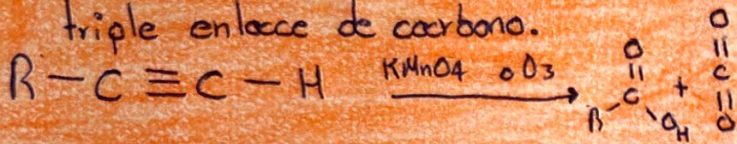 triple enlace de carbono.
R — C ≡ C — H KMnO4 o O3 R C O OH + O C O